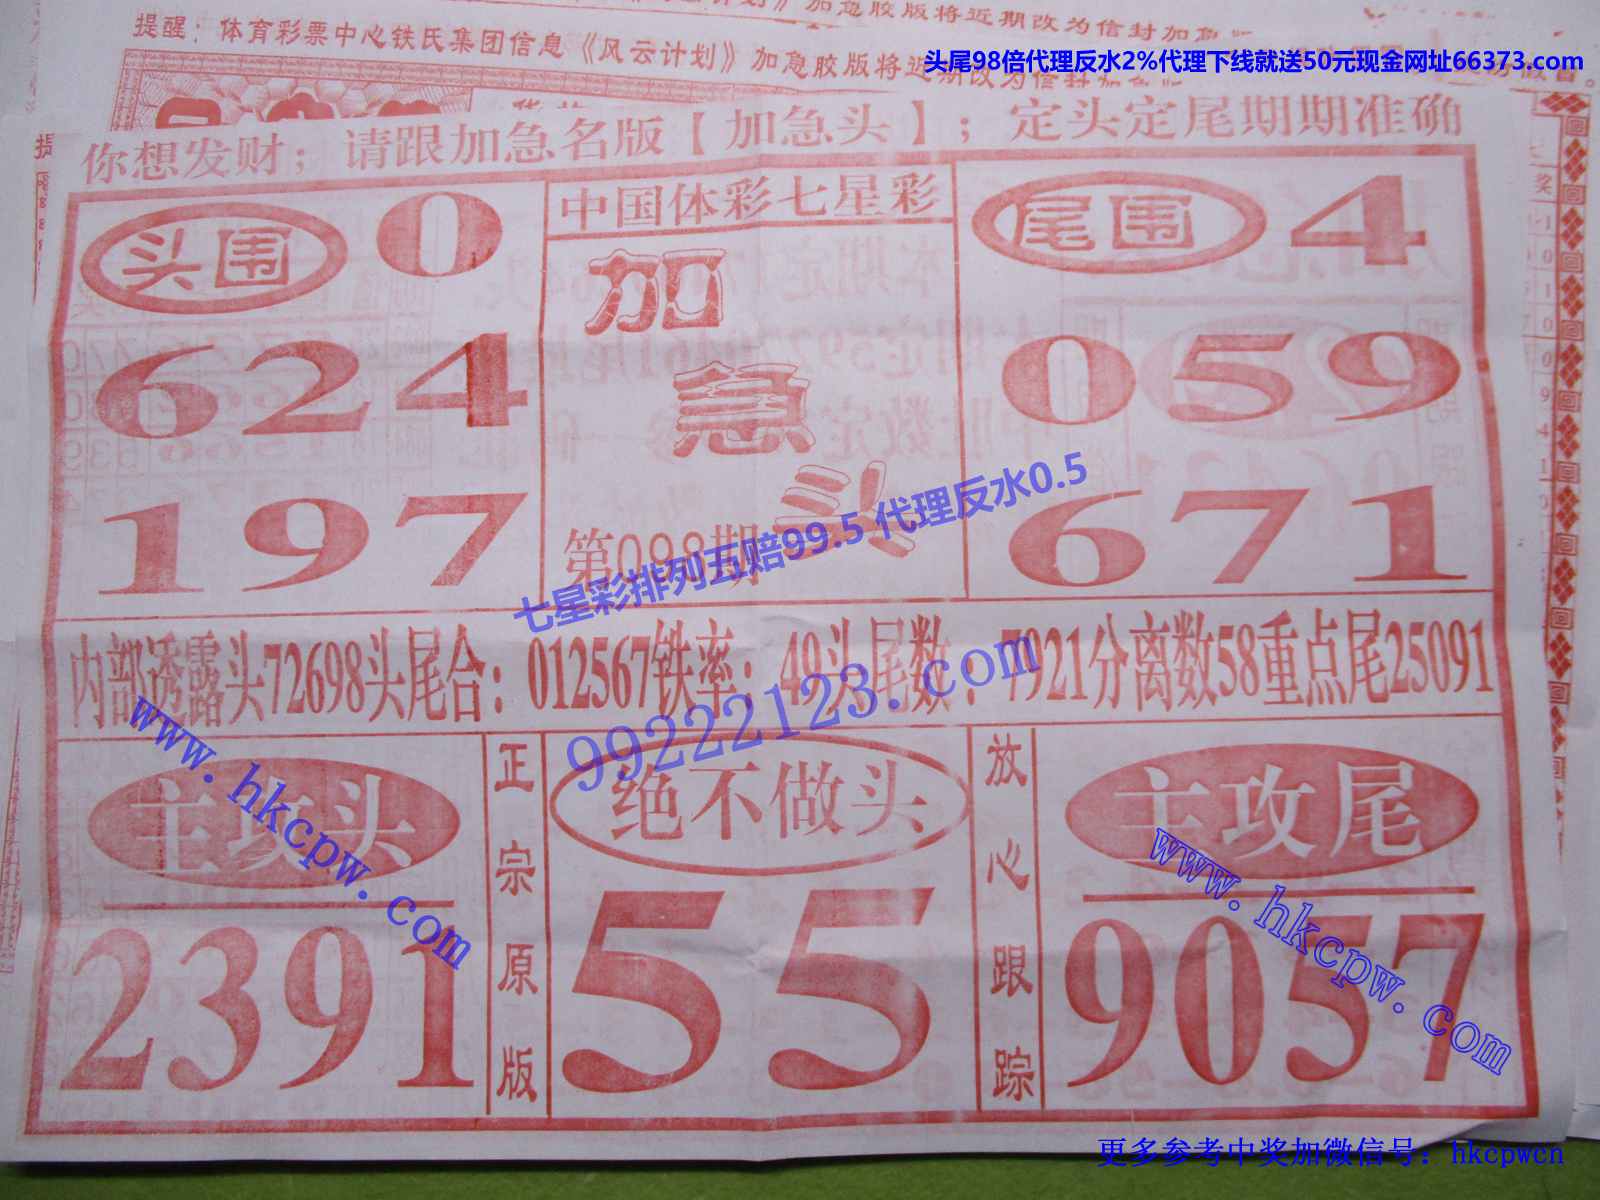 加急胶版将近期改为信封加急
提醒：体育彩票中心铁氏集团信息《风云计划》加急胶版将近期改为信封加急版
头尾98倍代理反水2%代理下线就送50元现金网址66373.com
你想发财；请跟加急名版【加急头】；定头定尾期期准确
头围 0
624
197
中国体彩七星彩
加
急
头
第098期
尾围 4
059
671
七星彩排列五赔99.5 代理反水0.5
内部透露头72698头尾合：012567铁率：49头尾数：7921分离数58重点尾25091
99222123.com
主攻头
2391
正宗原版
绝不做头
55
放心跟踪
主攻尾
9057
www.hkcpw.com
www.hkcpw.com
更多参考中奖加微信号：hkcpwcn